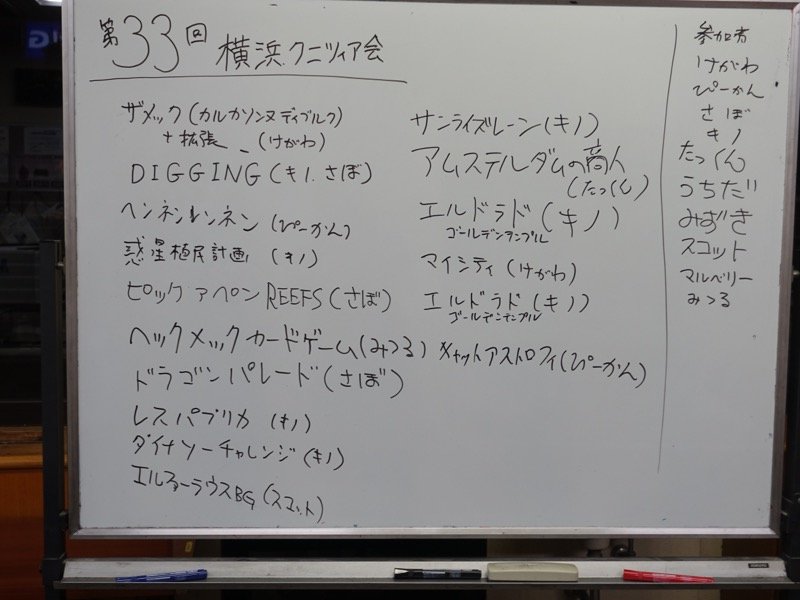 第33回 横浜クニツィア会
ザメック(カルカソンヌディブルク)
+拡張 (けがわ)
DIGGING(キノ.さぼ)
ヘンネンレンネン(ぴーかん)
惑星植民計画 (キノ)
ピックアペン REEFS(さぼ)
ヘックメックカードゲーム(みつる)
ドラゴンパレード(さぼ)
レスパブリカ (キノ)
ダイナソーチャレンジ(キノ)
エルファーラウスBG(スコット)
サンライズレーン(キノ)
アムステルダムの商人
(たっくん)
エルドラド(キノ)
ゴールデンテンプル
マイシティ(けがわ)
エルドラド(キノ)
ゴールデンテンプル
キャットアストロフィ(ぴーかん)
参加者
けがわ
ぴーかん
さぼ
キノ
たっくん
うちだ
みずき
スコット
マルベリー
みつる